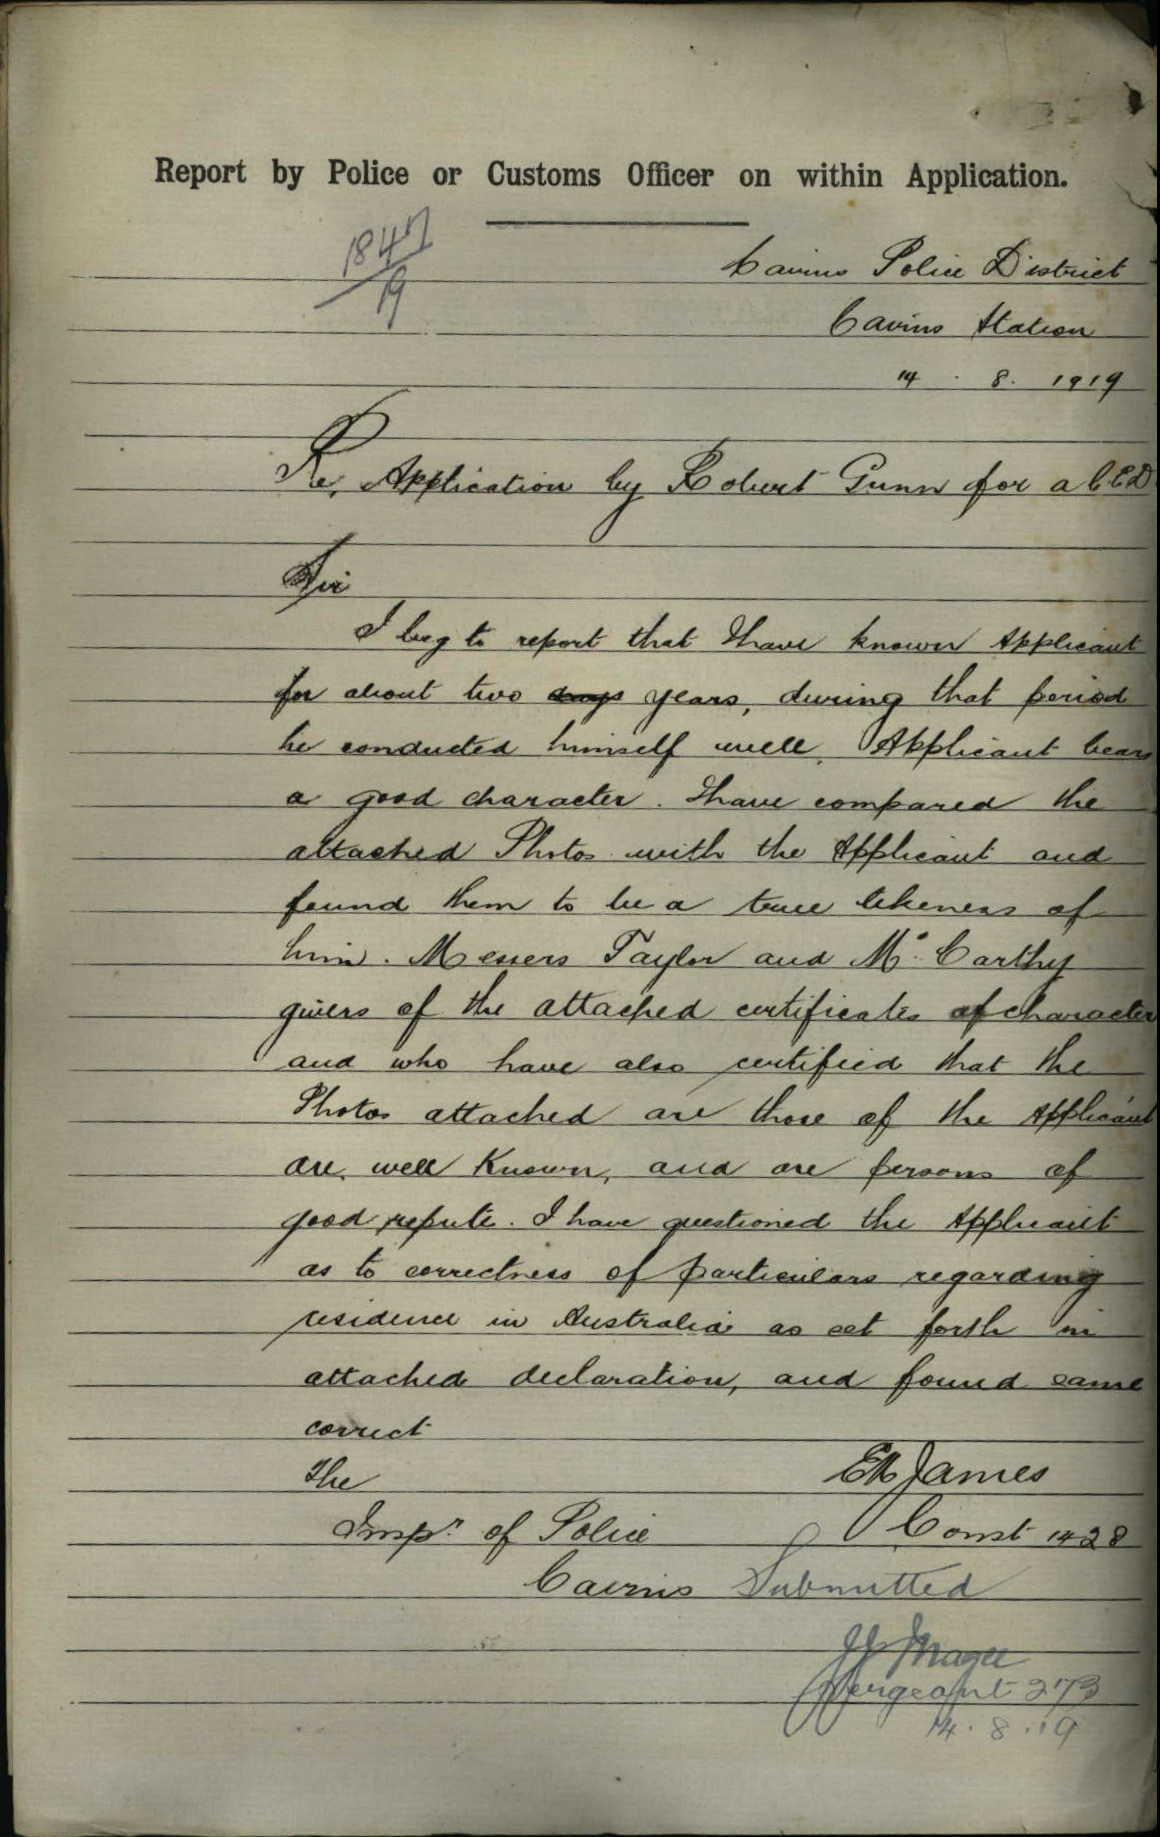 Report by Police or Customs Officer on within Application.
1847
19
Cairns Police District
Cairns Station
14 . 8 . 1919
Re, Application by Robert Gunn for a C.E.D
Sir
I beg to report that I have known Applicant
for about two days years, during that period
he conducted himself well. Applicant bears
a good character. I have compared the
attached Photos with the Applicant and
found them to be a true likeness of
him. Messers Taylor and Mc Carthy
givers of the attached certificates of character
and who have also certified that the
Photos attached are those of the Applicant
are well Known, and are persons of
good repute. I have questioned the Applicant
as to correctness of particulars regarding
residence in Australia as set forth in
attached declaration, and found same
correct
The
Insp.r of Police
Cairns
James
Const 1428
Submitted
Magee
Sergeant 273
14 . 8 . 19